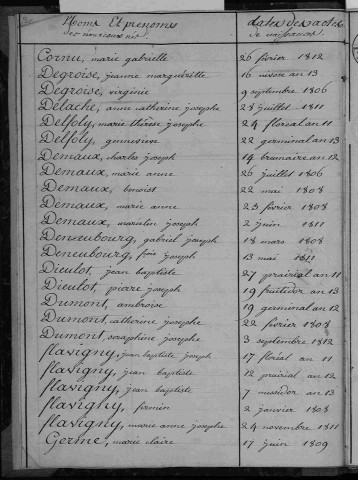 Noms Et prenoms dates des actes
des nouveaux nés de naissances
Cornu, marie gabrielle 26 fevrier 1812
Degroise, jeanne margueritte 16 nivose an 13
Degroise, virginie 9 septembre 1806
Delache, anne catherine josephe 28 juillet 1811
Delfoly, marie thérèse josephe 24 floreal an 11
Delfoly, genevieve 22 germinal an 13
Demaux, charles joseph 14 brumaire an 12
Demaux, marie anne 26 juillet 1806
Demaux, benoist 22 mai 1808
Demaux, marie anne 23 fevrier 1808
Demaux, joseph 2 juin 1811
Deneubourg, gabriel joseph 18 mars 1808
Deneubourg, frois joseph 13 mai 1811
Dieulot, jean baptiste 27 prairial an 11
Dieulot, pierre joseph 19 fructidor an 13
Dumont, ambroise 19 germinal an 12
Dumont, catherine josephe 22 fevrier 1808
Dumont, seraphine josephe 3 septembre 1812
flavigny, jean baptiste joseph 17 floréal an 11
flavigny, jean baptiste 12 prairial an 12
flavigny, jean baptiste 7 messidor an 13
flavigny, firmin 2 janvier 1808
flavigny, marie anne josephe 24 novembre 1811
Germe, marie claire 17 juin 1809